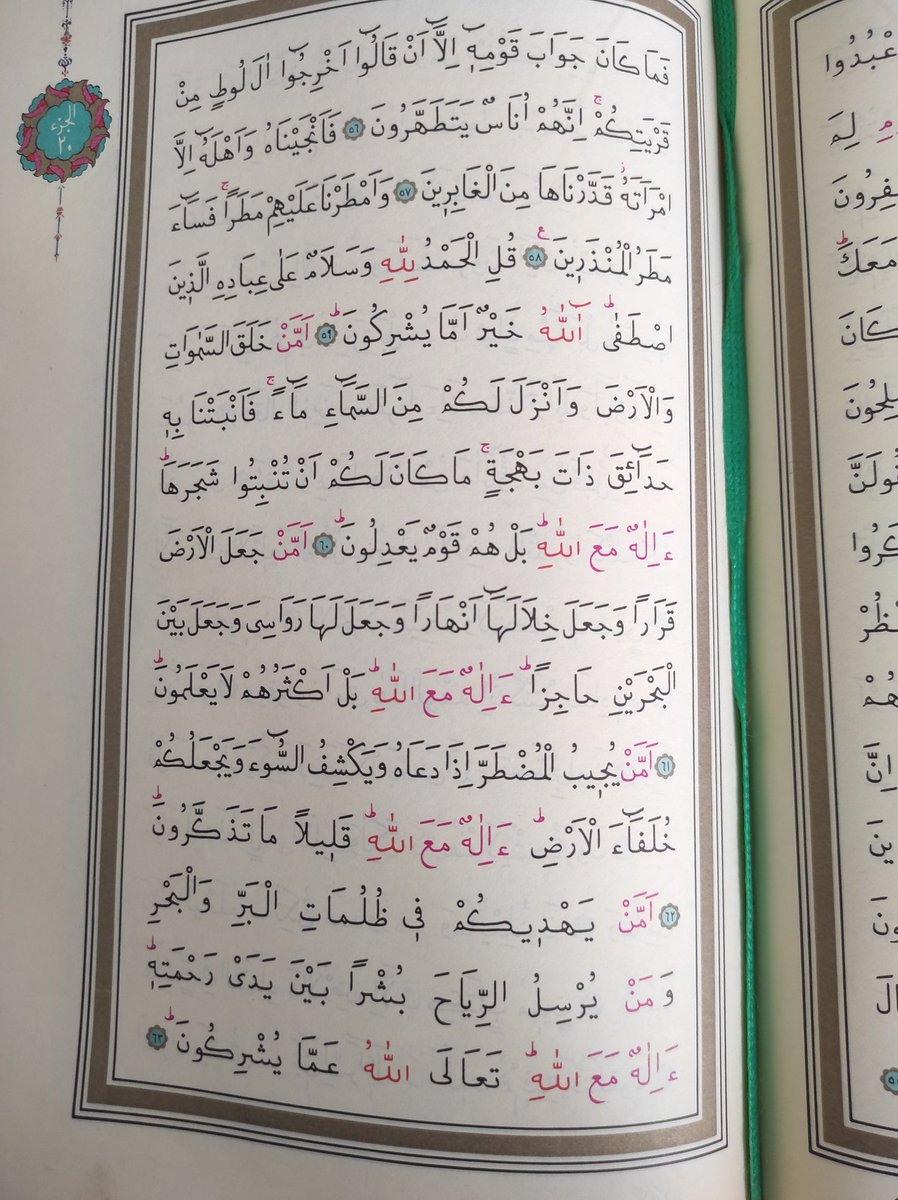 فَمَا كَانَ جَوَابَ قَوْمِهٖٓ اِلَّٓا اَنْ قَالُٓوا اَخْرِجُٓوا اٰلَ لُوطٍ مِنْ
قَرْيَتِكُمْۚ اِنَّهُمْ اُنَاسٌ يَتَطَهَّرُونَ ﴿٥٦﴾ فَاَنْجَيْنَاهُ وَاَهْلَهُٓ اِلَّا
امْرَاَتَهُۘ قَدَّرْنَاهَا مِنَ الْغَابِرٖينَ ﴿٥٧﴾ وَاَمْطَرْنَا عَلَيْهِمْ مَطَرًاۚ فَسَٓاءَ
مَطَرُ الْمُنْذَرٖينَ ﴿٥٨﴾ ع قُلِ الْحَمْدُ لِلّٰهِ وَسَلَامٌ عَلٰى عِبَادِهِ الَّذٖينَ
اصْطَفٰىؕ آٰللّٰهُ خَيْرٌ اَمَّا يُشْرِكُونَؕ ﴿٥٩﴾ اَمَّنْ خَلَقَ السَّمٰوَاتِ
وَالْاَرْضَ وَاَنْزَلَ لَكُمْ مِنَ السَّمَٓاءِ مَٓاءًۚ فَاَنْبَتْنَا بِهٖ
حَدَٓائِقَ ذَاتَ بَهْجَةٍۚ مَا كَانَ لَكُمْ اَنْ تُنْبِتُوا شَجَرَهَاؕ
ءَاِلٰهٌ مَعَ اللّٰهِؕ بَلْ هُمْ قَوْمٌ يَعْدِلُونَؕ ﴿٦٠﴾ اَمَّنْ جَعَلَ الْاَرْضَ
قَرَارًا وَجَعَلَ خِلَالَهَٓا اَنْهَارًا وَجَعَلَ لَهَا رَوَاسِىَ وَجَعَلَ بَيْنَ
الْبَحْرَيْنِ حَاجِزًاؕ ءَاِلٰهٌ مَعَ اللّٰهِؕ بَلْ اَكْثَرُهُمْ لَا يَعْلَمُونَؕ
﴿٦١﴾ اَمَّنْ يُجٖيبُ الْمُضْطَرَّ اِذَا دَعَاهُ وَيَكْشِفُ السُّٓوءَ وَيَجْعَلُكُمْ
خُلَفَٓاءَ الْاَرْضِؕ ءَاِلٰهٌ مَعَ اللّٰهِؕ قَلٖيلًا مَا تَذَكَّرُونَؕ
﴿٦٢﴾ اَمَّنْ يَهْدٖيكُمْ فٖى ظُلُمَاتِ الْبَرِّ وَالْبَحْرِ
وَمَنْ يُرْسِلُ الرِّيَاحَ بُشْرًا بَيْنَ يَدَىْ رَحْمَتِهٖؕ
ءَاِلٰهٌ مَعَ اللّٰهِؕ تَعَالَى اللّٰهُ عَمَّا يُشْرِكُونَؕ ﴿٦٣﴾
الجزء
٢٠
لِمَ
مَعَكَؕ
كَانَ
اِنَّ